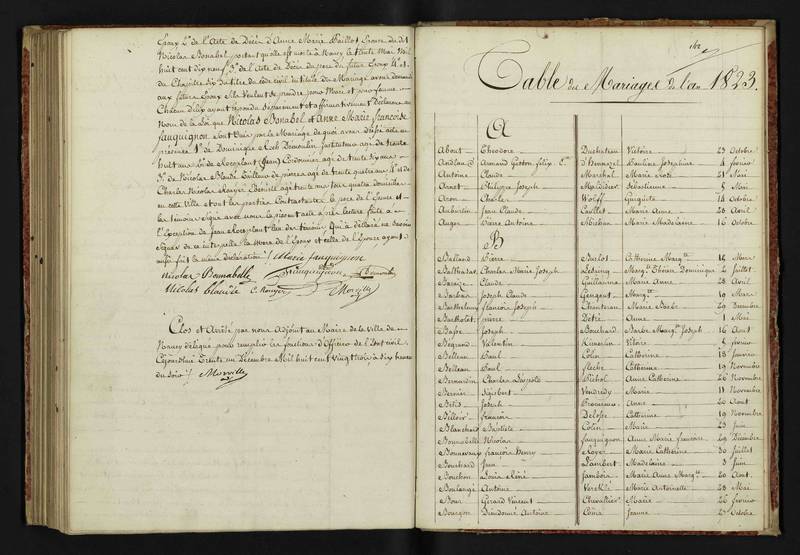 Epoux 2.° de l'Acte de Décès d'Anne Marie Paillot Epouse du dit
Nicolas Bonabel portant qu'elle est morte à Nancy le trente Mai Mil
huit cent dix neuf 3.° de l'acte de Décès du père du futur Epoux 4.° et
du Chapitre six du titre du code civil intitulé du Mariage avons demandé
aux futurs Epoux s'ils veulent se prendre pour Mari et pour femme
Chacun d'eux ayant répondu séparément et affirmativement Déclarons au
Nom de la Loi que Nicolas Bonabel et Anne Marie françoise
fauquignon sont unis par le Mariage de quoi avons dressé acte en
présence 1.° de Dominique Roch Demoulin Instituteur agé de trente
huit ans 2.° de Recoplant (Jean) Cordonnier agé de trente six ans
3.° de Nicolas Blaudé Tailleur de pierres agé de trente quatre ans 4.° et de
Charles Nicolas Rouyer Ebéniste agé trente ans tous quatre domiciliés
en cette Ville et ont les parties Contractantes le père de l'Epouse et
les témoins signé avec nous le présent acte après lecture faite à
l'exception de Jean Recoplant l'un des témoins qui a déclaré ne savoir
signer de ce interpellé la Mère de l'Epoux et celle de l'Epouse ayant
aussi fait la même déclaration / Marie fauquignon
nicolas Bonnabelle fauquignon Demoulin
Nicolas blaudé C. Rouyer Morville
Clos et Arrêté par nous Adjoint au Maire de la Ville de
Nancy délégué pour remplir les fonctions d'Officier de l'Etat civil
Cejourd'hui Trente un Décembre Mil huit cent Vingt trois à dix heures
du soir / Morville
Table des Mariages de l'an 1823.
A
About Théodore Duchateau Victoire 23 Octobre
Armand Gaston félix C. D'Hennezel Pauline Joséphine 4 février
Antoine Claude Marchal Marie Rose 21 Mai
Arnet Philippe Joseph Mépididier Sébastienne 5 Mai
Aron Charle Wolff Guguite 14 Octobre
Aubertin Jean Claude Caillet Marie Anne 28 Avril
Auger Pierre Antoine Michban Marie Madelaine 16 Octobre
B
Balland Pierre Barlot Catherine Marg.te 15 Mars
Balthazar Charles Marie Joseph Leseing Marg.te Thérèse Dominique 2 Juillet
Baraize Claude Guillaume Marie Anne 28 Avril
Barban Joseph Claude Gengout Marg.te 19 Mars
Barthelemy françois Joseph Chanteau Marie Barbe 29 Décembre
Bartholet pierre Détré Anne 1 Mai
Basse Joseph Bouchard Barbe Marg.te Joseph 16 Aout
Begrand Valentin Rimeslin Vitoire 5 février
Belleau Paul Colin Catherine 18 Janvier
Belleau Paul fleche Catherine 19 Novembre
Bernardin Charles Léopold Michel Anne Catherine 26 Novembre
Bernier Sigisbert Vendredy Marie 11 Novembre
Bétis Joseph Anne 20 Aout
Billoir françois Delosse Catherine 19 Novembre
Blanchard Baptiste Colin Marie 23 Juin
Bonnabelle Nicolas fauquignon Anne Marie françoise 29 Décembre
Bonnevaux françois Henry Royer Marie Catherine 30 Juillet
Bouchard Jean Lambert Madelaine 3 Juin
Bouchon Louis Réné Jambois Marie Anne Marg.te 20 Aout
Boulangé Antoine Verklé Marie Antoinette 28 Mai
Bour Gérard Vincent Chevallier Marie 26 février
Bourgon Dieudonné Antoine Côme Jeanne 27 Octobre